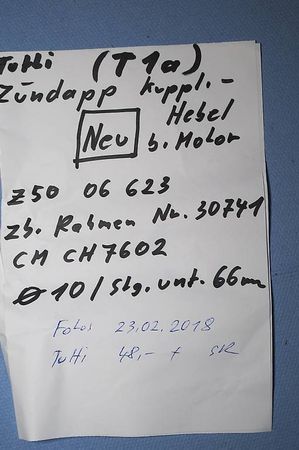 Tutti (T1a)
Zündapp Kuppl.-
Hebel
Neu b. Motor
Z50 06 623
Zb. Rahmen Nr. 30741
CM CH7602
Ø 10 / Stg. unt. 66mm
Fotos 23.02.2018
Tutti 48,- +